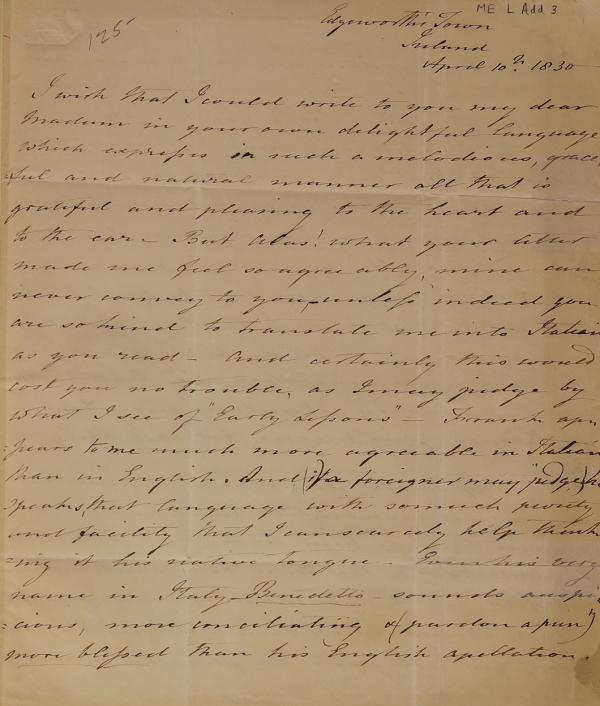 ME L Add 3
125
Edgeworth's Town
Ireland
April 10th. 1830
I wish that I could write to you my dear
Madam in your own delightful language
which expresses in such a melodious, grace,
=ful and natural manner all that is
grateful and pleasing to the heart and
to the ear – But alas! what your letter
made me feel so agreeably, mine can
never convey to you, unless indeed you
are so kind to translate me into Italian
as you read – And certainly this would
cost you no trouble, as I may judge by
what I see of "Early Lessons" – Frank ap
=pears to me much more agreeable in Italian
than in English. And (if a foreigner may judge) he
speaks, that language with so much purity
and facility that I can scarcely help think
=ing it his native tongue – Even his very
name in Italy – Benedetto – sounds auspi
=cious, more conciliating & (pardon a pun)
more blessed than his English apellation.